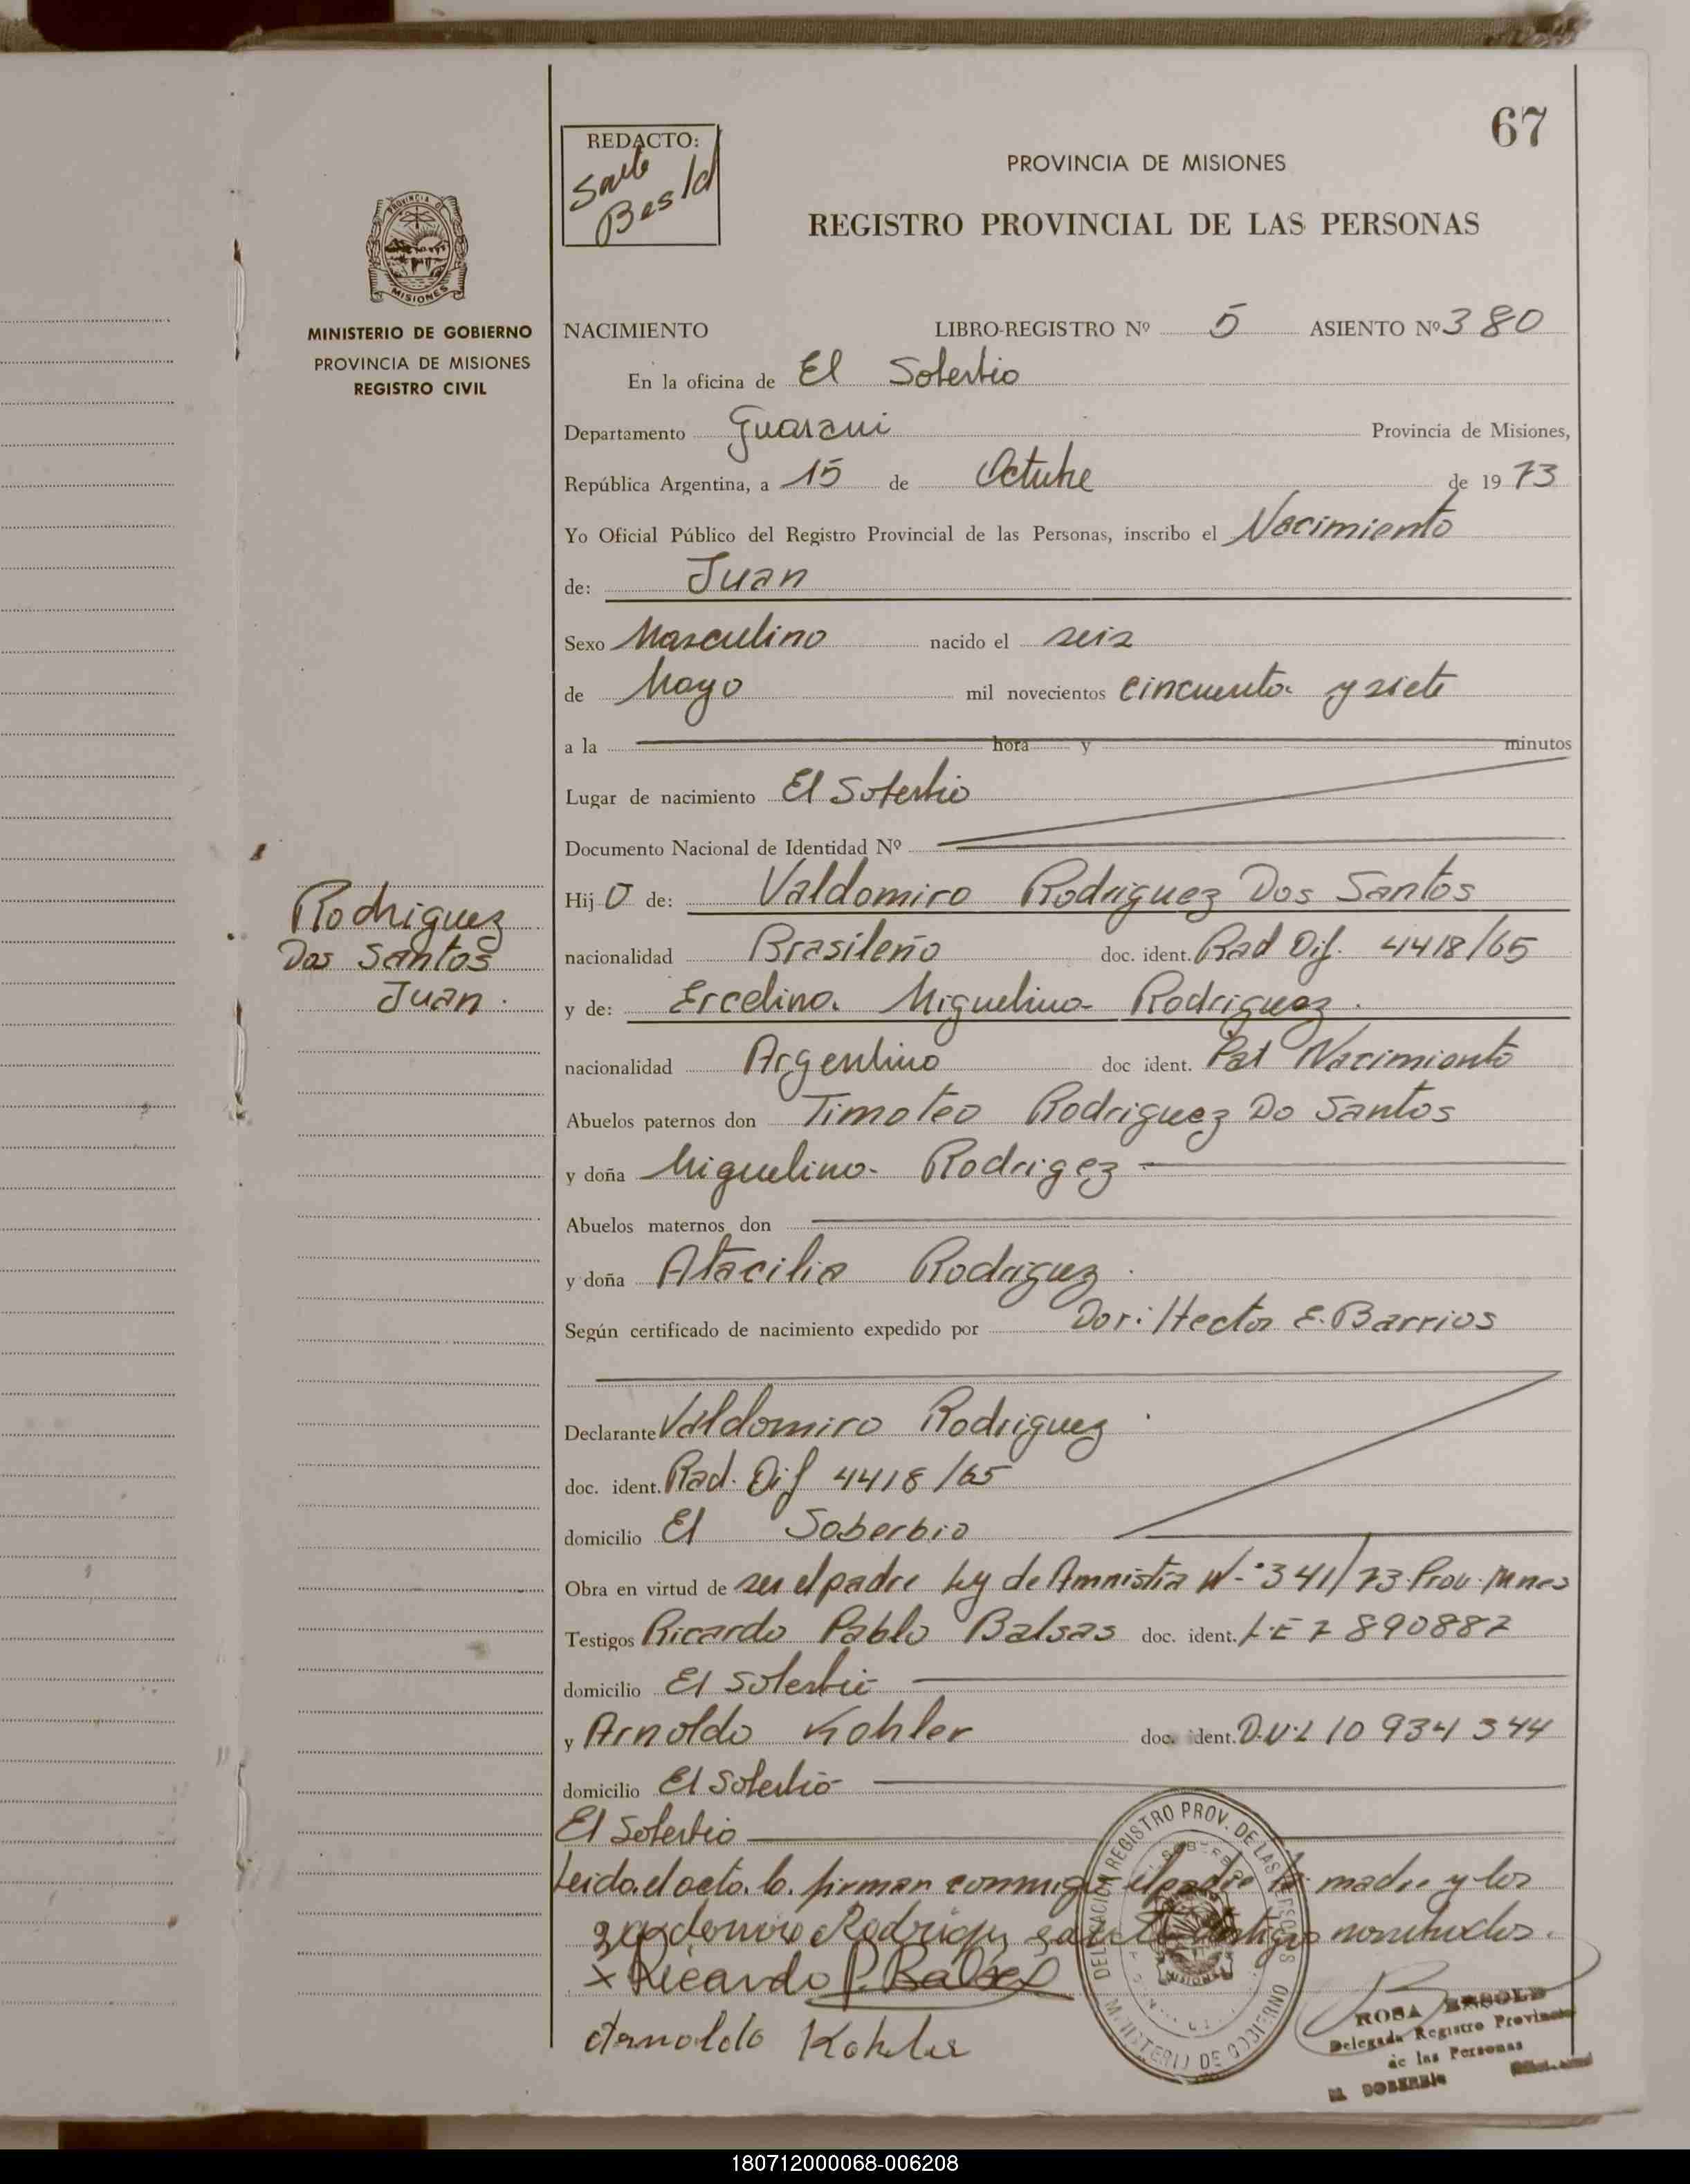 67
REDACTO:
PROVINCIA DE MISIONES
REGISTRO PROVINCIAL DE LAS PERSONAS
PROVINCIA DE
MISIONES
MINISTERIO DE GOBIERNO
PROVINCIA DE MISIONES
REGISTRO CIVIL
NACIMIENTO LIBRO-REGISTRO Nº 5 ASIENTO Nº 380
En la oficina de El Soberbio
Departamento Guarani Provincia de Misiones,
República Argentina, a 15 de Octubre de 1973
Yo Oficial Público del Registro Provincial de las Personas, inscribo el Nacimiento
de: Juan
Sexo Masculino nacido el seis
de Mayo mil novecientos cincuenta y siete
a la hora y minutos
Lugar de nacimiento El Soberbio
Documento Nacional de Identidad Nº
Rodriguez
Dos Santos
Juan
Hij o de: Valdomiro Rodriguez Dos Santos
nacionalidad Brasileño doc. ident. Rad Dif. 4418/65
y de: Ercelina Miguelina Rodriguez.
nacionalidad Argentina doc ident. Pat Nacimiento
Abuelos paternos don Timoteo Rodriguez Do Santos
y doña Miguelina Rodrigez
Abuelos maternos don
y doña Atacilia Rodriguez
Según certificado de nacimiento expedido por Dor: Hector E. Barrios
Declarante Valdomiro Rodriguez
doc. ident. Rad. Dif 4418/65
domicilio El Soberbio
Obra en virtud de ser el padre Ley de Amnistia Nº 341/73 Prov. Mnes
Testigos Ricardo Pablo Balsas doc. ident. L.E 7 890887
domicilio El Soberbio
y Arnoldo Kohler doc. ident. D.U.I 10 934 344
domicilio El Soberbio
El Soberbio
Leida el acta la firman conmigo el padre la madre y los
testigos nombrados.
x Ricardo P. Balsas
Arnoldo Kohler
DELEGACION REGISTRO PROV. DE LAS PERSONAS
MINISTERIO DE GOBIERNO
MISIONES
ROSA BESOLD
Delegada Registro Provincial
de las Personas
EL SOBERBIO
180712000068-006208